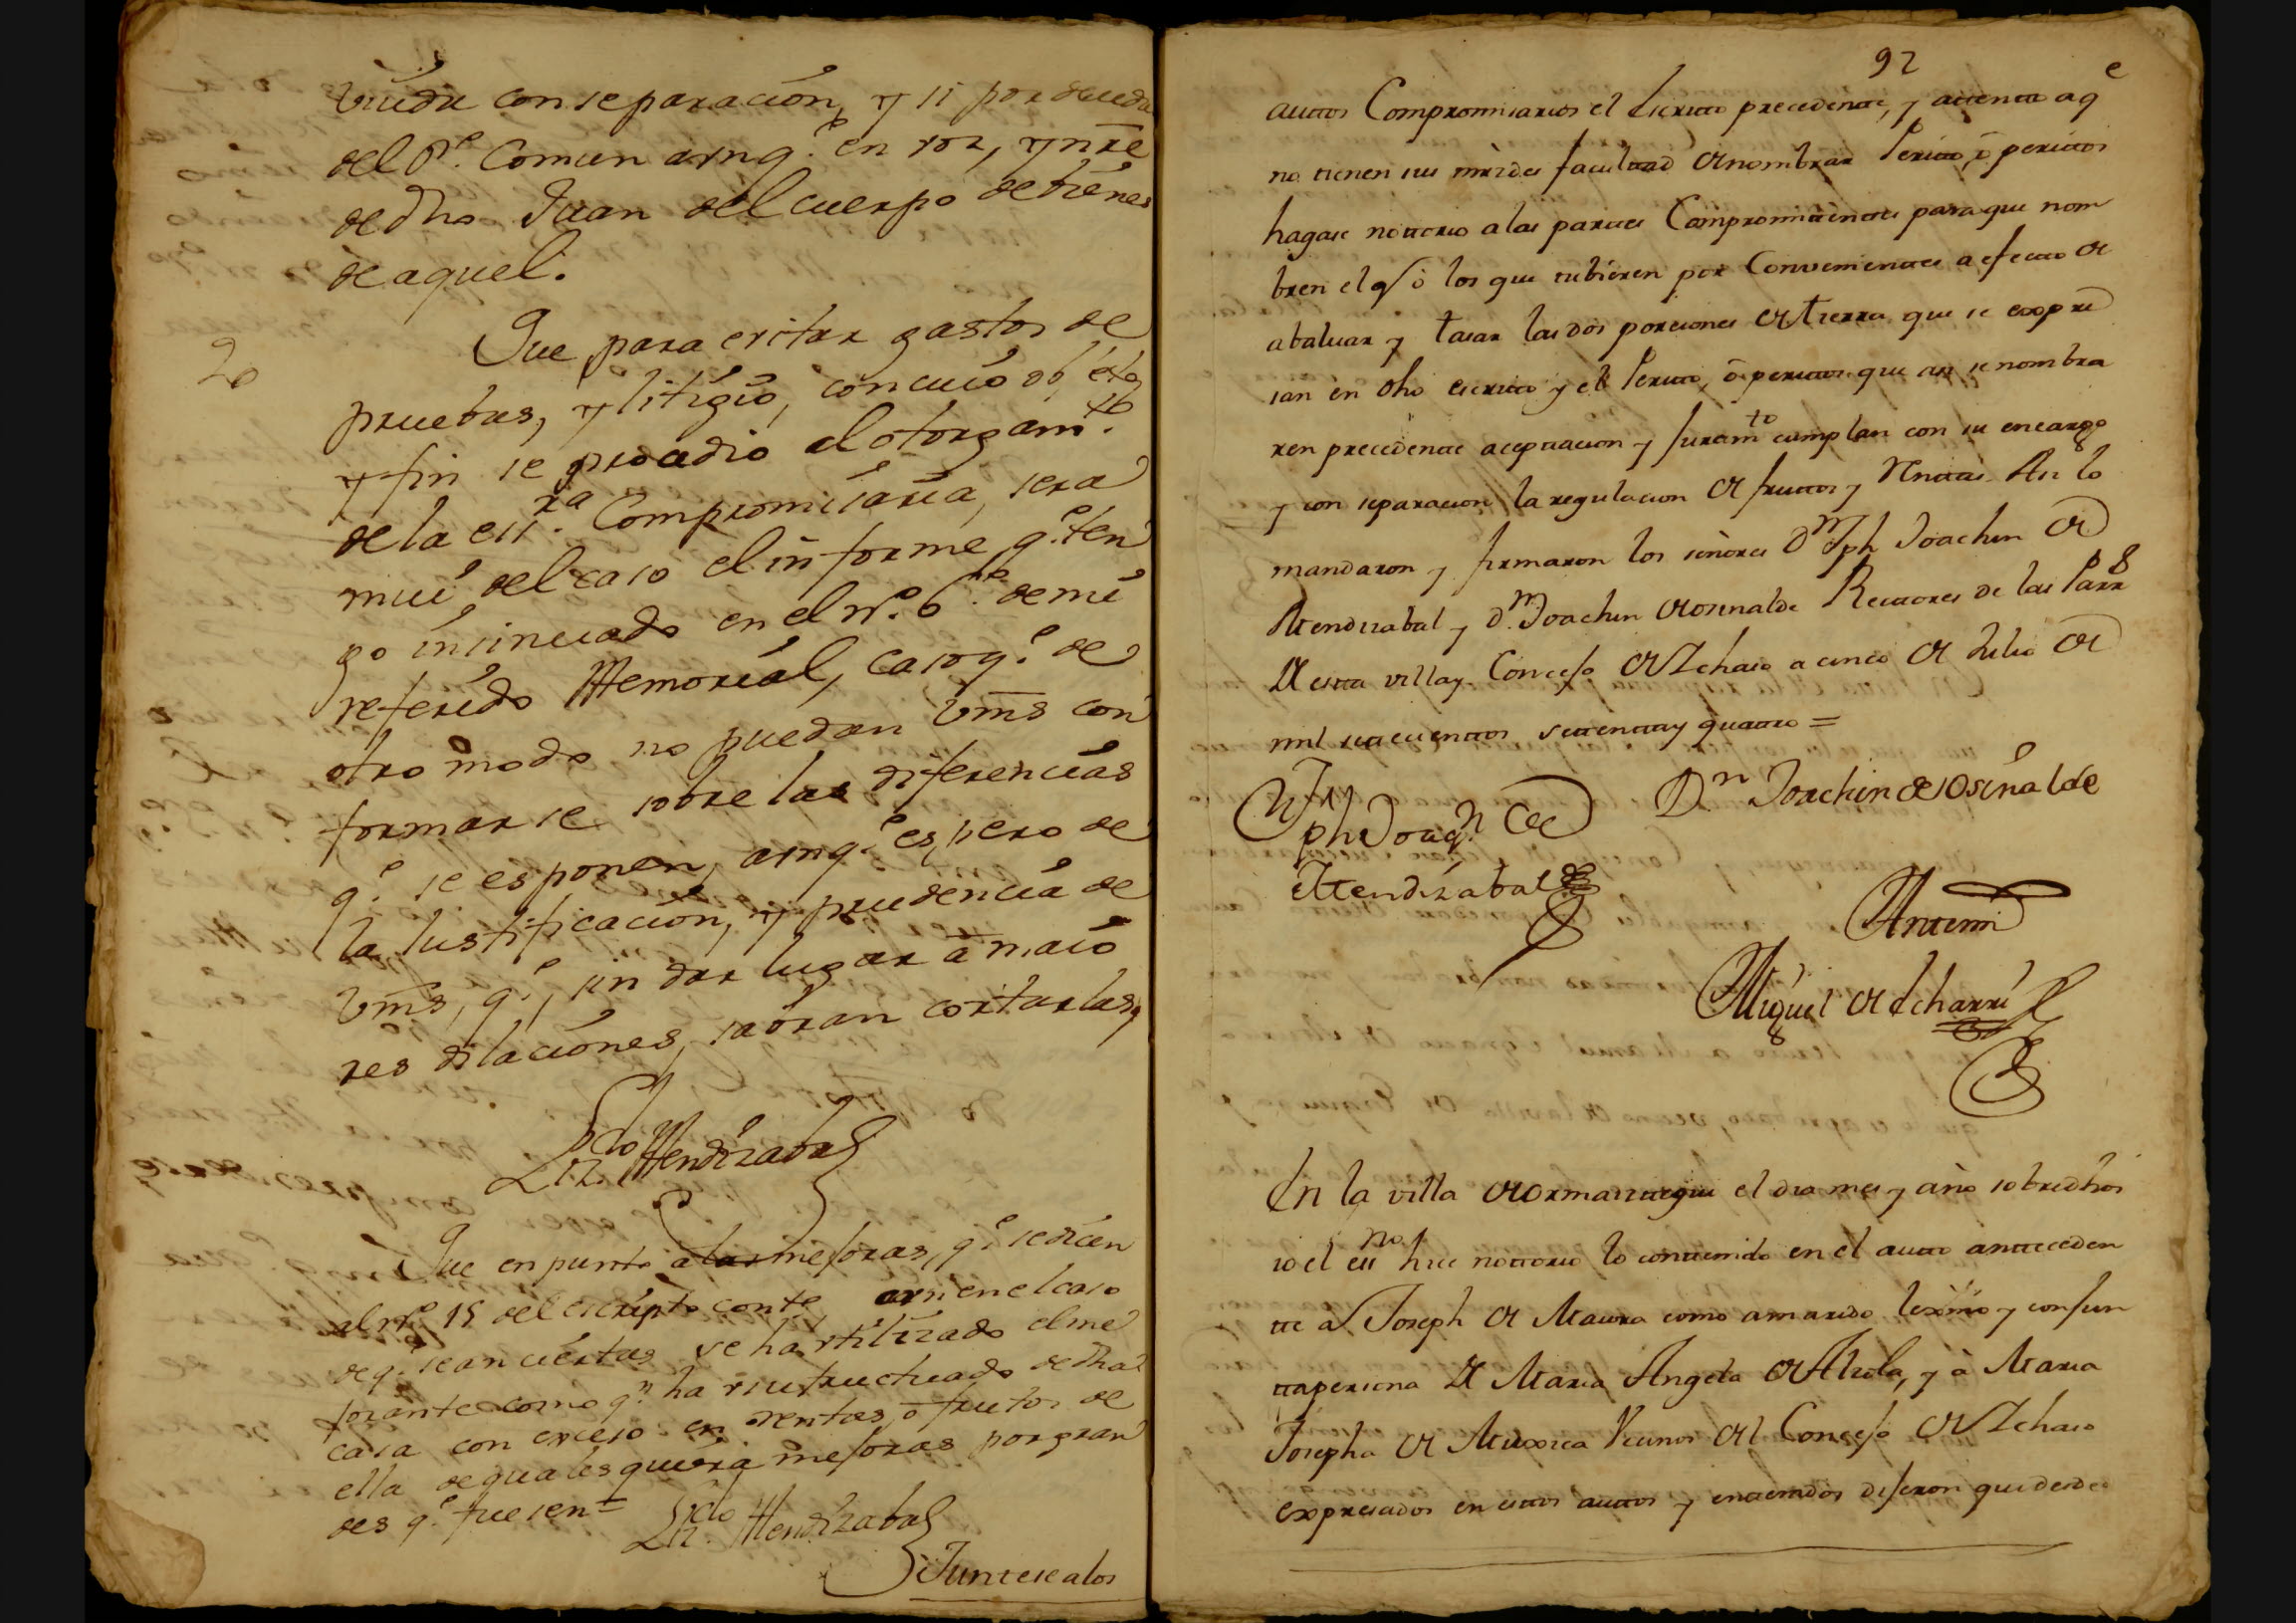 viuda con separación, y si por deuda
del P.e Comun aunq.e en voz, y nre
de dho Juan del cuerpo de bienes
de aquel.
2o
Que para evitar gastos de
pruebas, y litigio, con cuio obieto
y fin se procedio al otorgam.to
de la ess.ra Compromisaria, sera
mui del caso el informe q.e ten
go insinuado en el n.o 6.o de mi
referido Memorial, caso q.e de
otro modo no puedan Vms con
formarse sobre las diferencias
q.e se esponen, aunq.e espero de
la Justificacion, y prudencia de
Vms, q.e, sin dar lugar à maio
res dilaciones, sabràn cortarlas,
Lizdo Mendizabal
Que en punto a las mejoras, q.e se dicen
al n.o 15 del escripto conte. aun en el caso
de q.e sean ciertas se ha utilizado el me
jorante como q.n ha usufructuado de dha
casa con exceso en rentas, ò frutos de
ella de qualesquiera mejoras por gran
des q.e fuesen=
Lizdo Mendizabal
Juntese a los
92
auttos Compromisarios el escritto precedente, y attentto a q.e
no tienen sus mrzdes facultad de nombrar Peritto, ò perittos
hagase nottorio a las parttes Compromittentes para que nom
bren el q.e ò los que tubieren por Convenientes a efectto de
abaluar y tasar las dos porciones de tierra que se expre
san en dho escritto y el Peritto, ò perittos que asi se nombra
ren precedente acepttacion y Juramto cumplan con su encargo
y con separacion la regulacion de fruttos y Renttas. Asi lo
mandaron y firmaron los señores Dn Jph Joachin de
Mendizabal y D.n Joachin de Osinalde Rectores de las Parr.s
de estta villa y Concejo de Ichaso a cinco de Julio de
mil settecienttos settentta y quattro =
Dn Jph Joaqn de
Mendizabal
Dn Joachin de Osinalde
Antemi
Miguel de Echarri
En la villa de Ormaizttegui el dia mes y año sobredhos
io el essno hice nottorio lo conttenido en el autto antteceden
tte a Joseph de Maura como a marido lexmo y conjun
tta persona de Maria Angela de Alzola, y à Maria
Josepha de Muxica Vecinos del Concejo de Ichaso
expresados en esttos auttos y enttendidos dijeron que desde